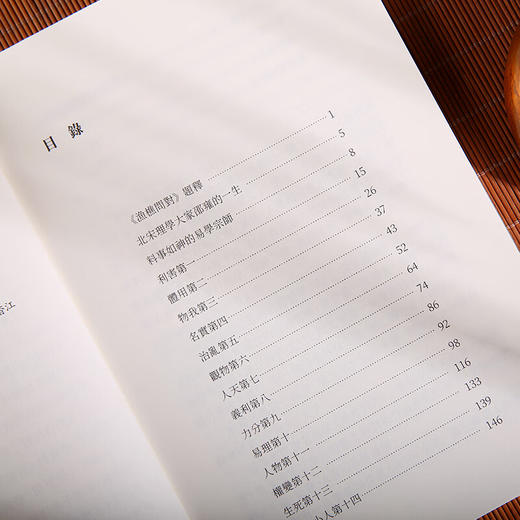 香江
目錄
《漁樵問對》題釋 1
北宋理學大家邵雍的一生 5
料事如神的易學宗師 8
利害第一 15
體用第二 26
物我第三 37
名實第四 43
治亂第五 52
觀物第六 64
人天第七 74
義利第八 86
力分第九 92
易理第十 98
人物第十一 116
權變第十二 133
生死第十三 139
小人第十四 146